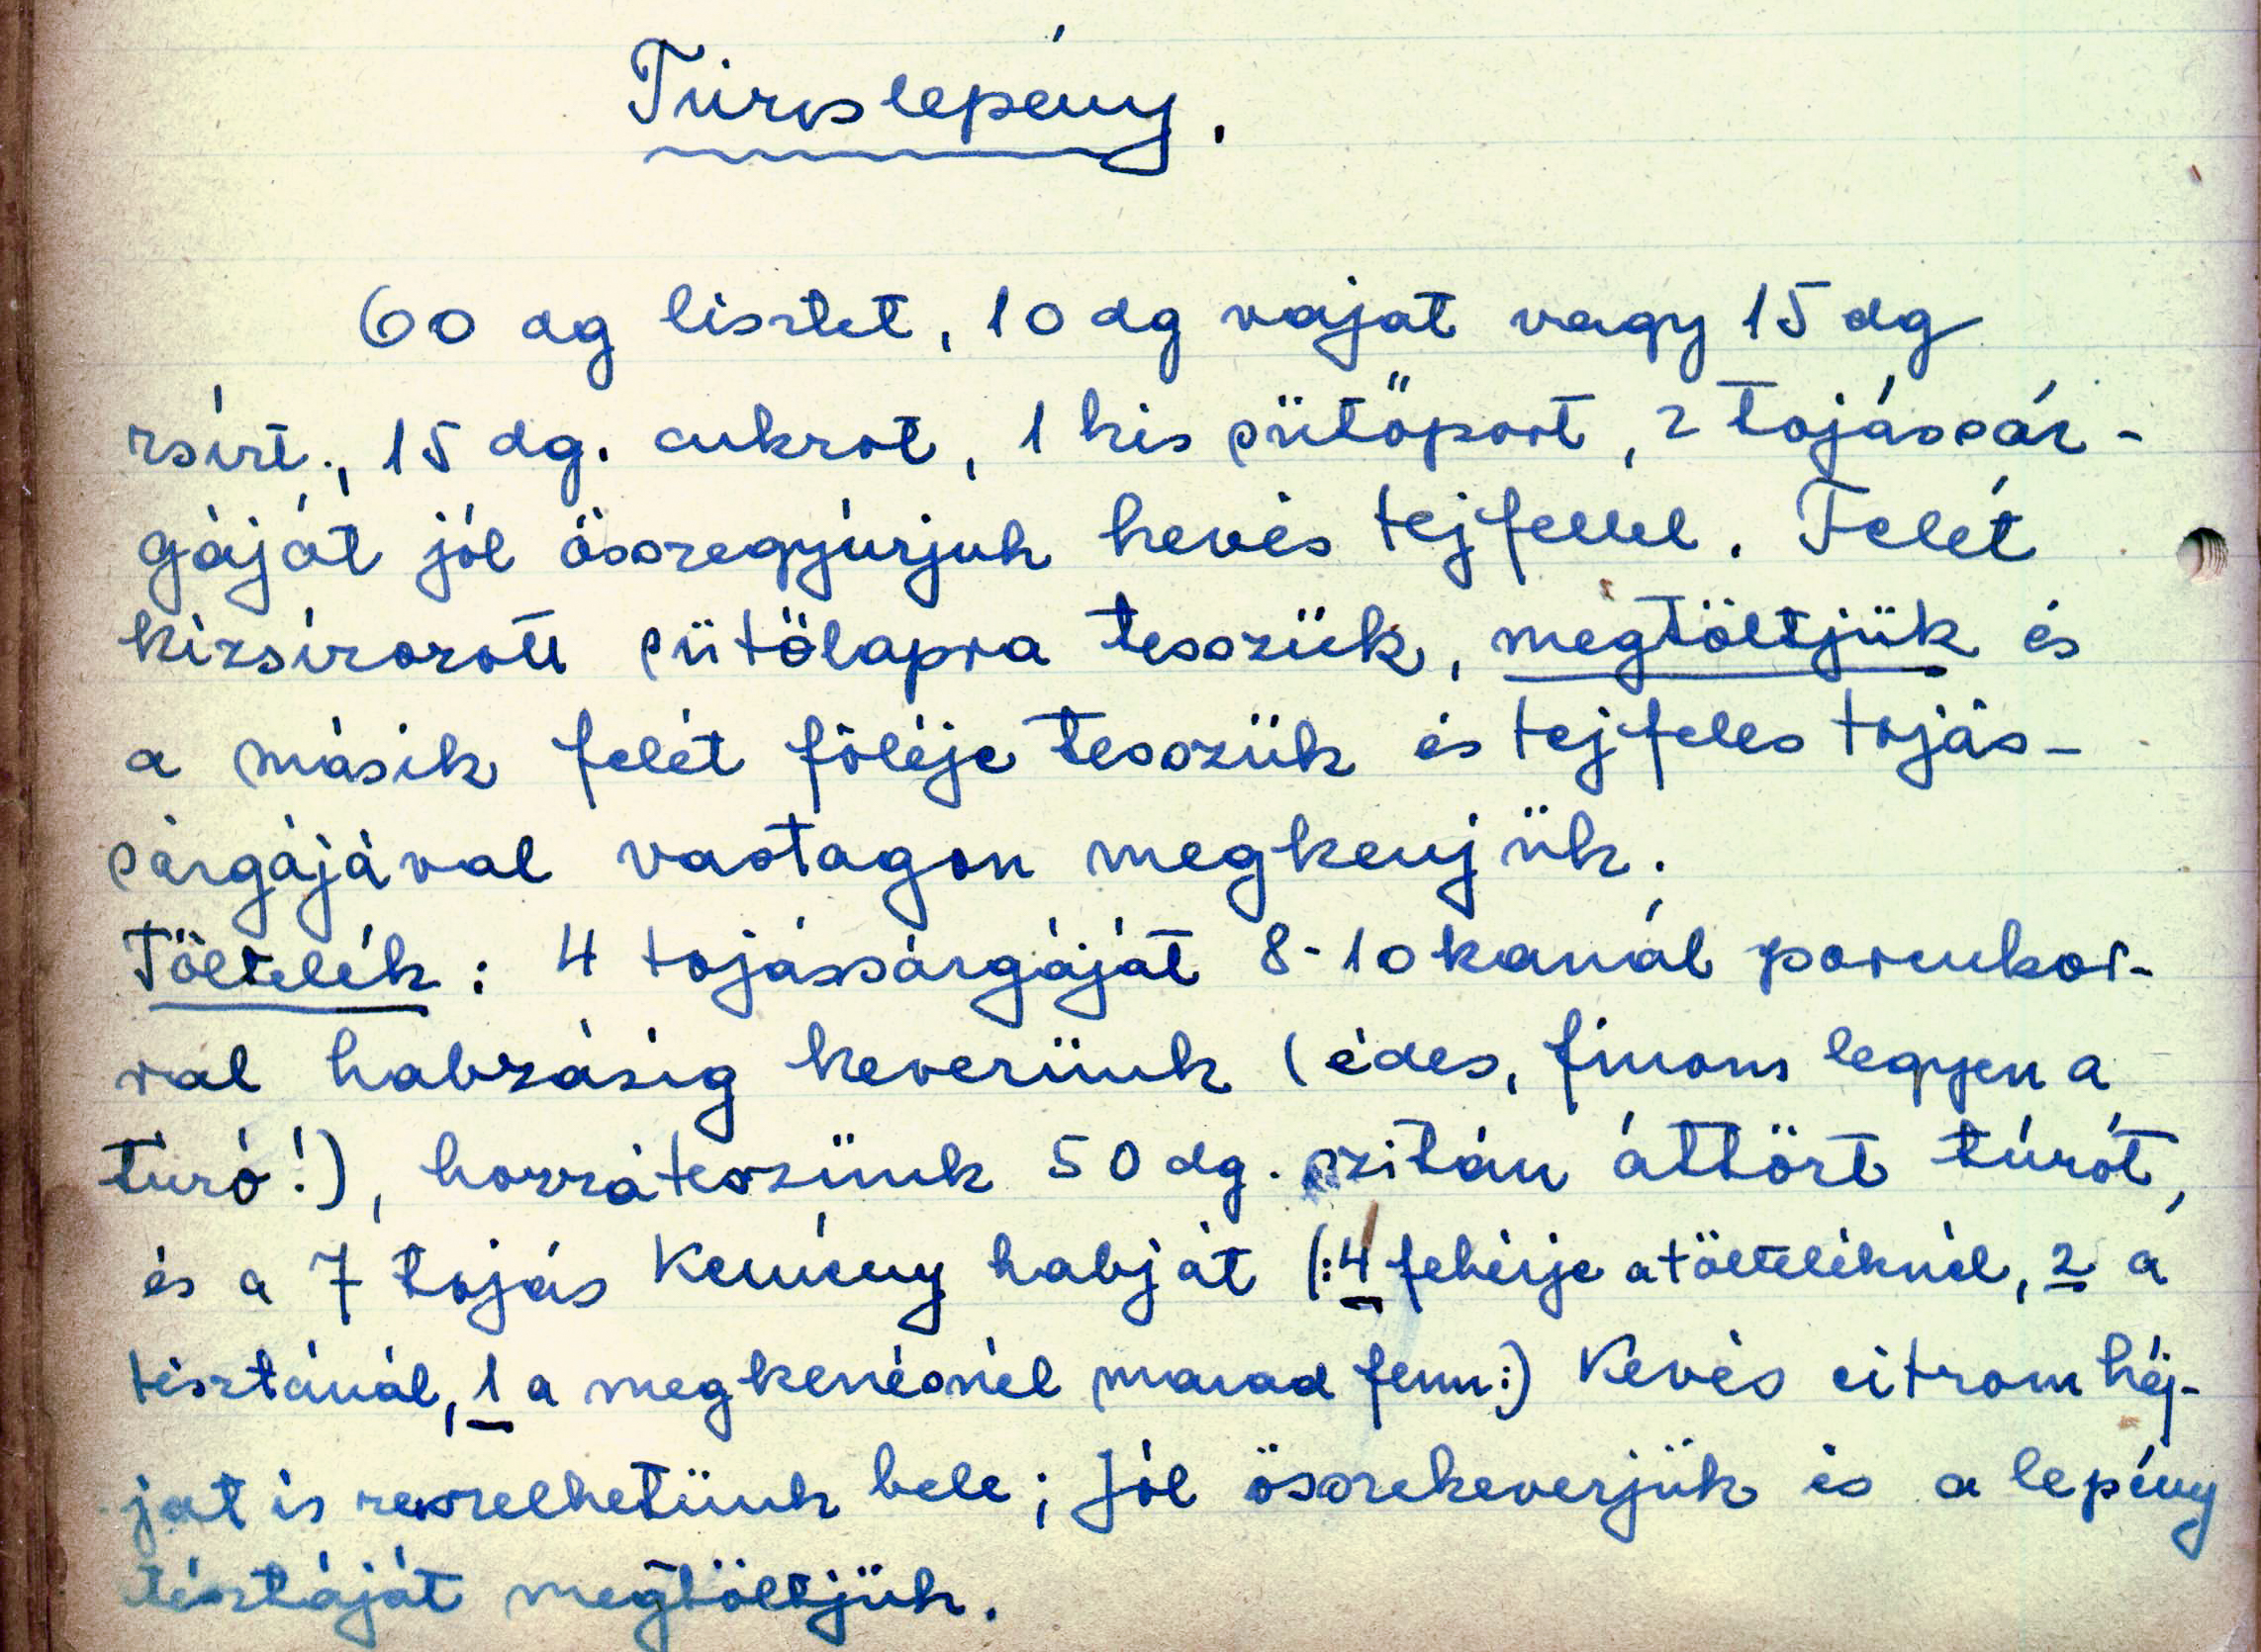 Túróslepény.
60 dg lisztet, 10 dg vajat vagy 15 dg
zsírt., 15 dg. cukrot, 1 kis sütőport, 2 tojássár-
gáját jól összegyúrjuk kevés tejfellel. Felét
kizsírozott sütőlapra tesszük, megtöltjük és
a másik felét föléje tesszük és tejfeles tojás-
sárgájával vastagon megkenjük.
Töltelék: 4 tojássárgáját 8-10 kanál porcukor-
ral habzásig keverünk (édes, finom legyen a
túró!), hozzáteszünk 50 dg. szitán áttört túrót,
és a 7 tojás kemény habját (:4 fehérje a tölteléknél, 2 a
tésztánál, 1 a megkenésnél marad fenn:) Kevés citromhéj-
jat is reszelhetünk bele; Jól összekeverjük és a lepény
tésztáját megtöltjük.